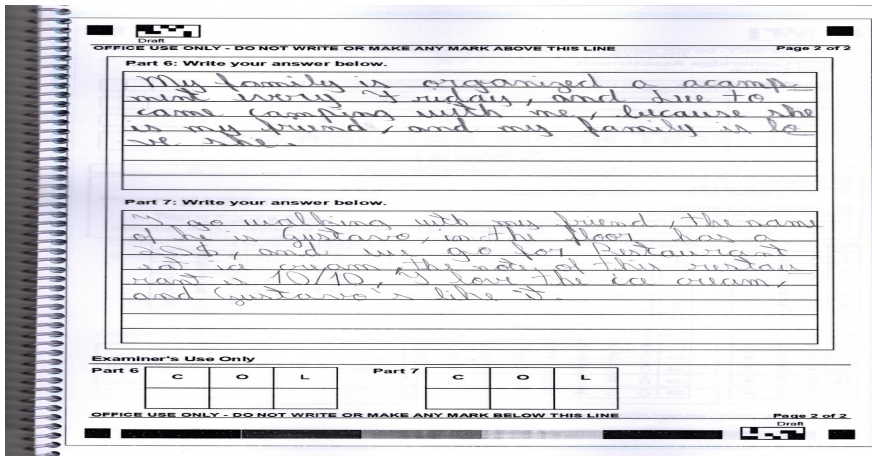 Draft
OFFICE USE ONLY - DO NOT WRITE OR MAKE ANY MARK ABOVE THIS LINE Page 2 of 2
Part 6: Write your answer below.
My family is organized a acamp
ment every Friday, and Sue to
came camping with me, because she
is my friend, and my family is lo
ve she.
Part 7: Write your answer below.
I go walking with my friend, the name
of he is Gustavo, in the floor has a
and we go for Restaurant
eat ice cream, the note of this restau
rant is 10/10, I love the ice cream,
and Gustavo's like it.
Examiner's Use Only
Part 6 C O L Part 7 C O L
OFFICE USE ONLY - DO NOT WRITE OR MAKE ANY MARK BELOW THIS LINE Page 2 of 2
Draft